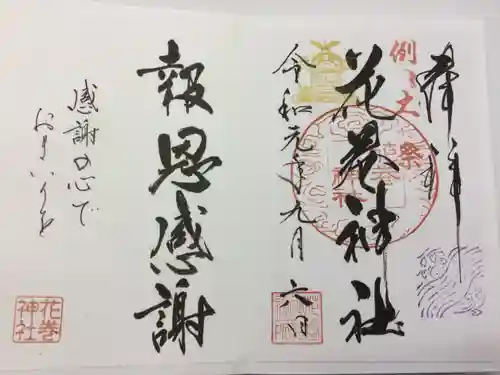 奉拝
例大祭
花巻神社
令和元年九月六日
報恩感謝
感謝の心で
おまいりを
花巻
神社